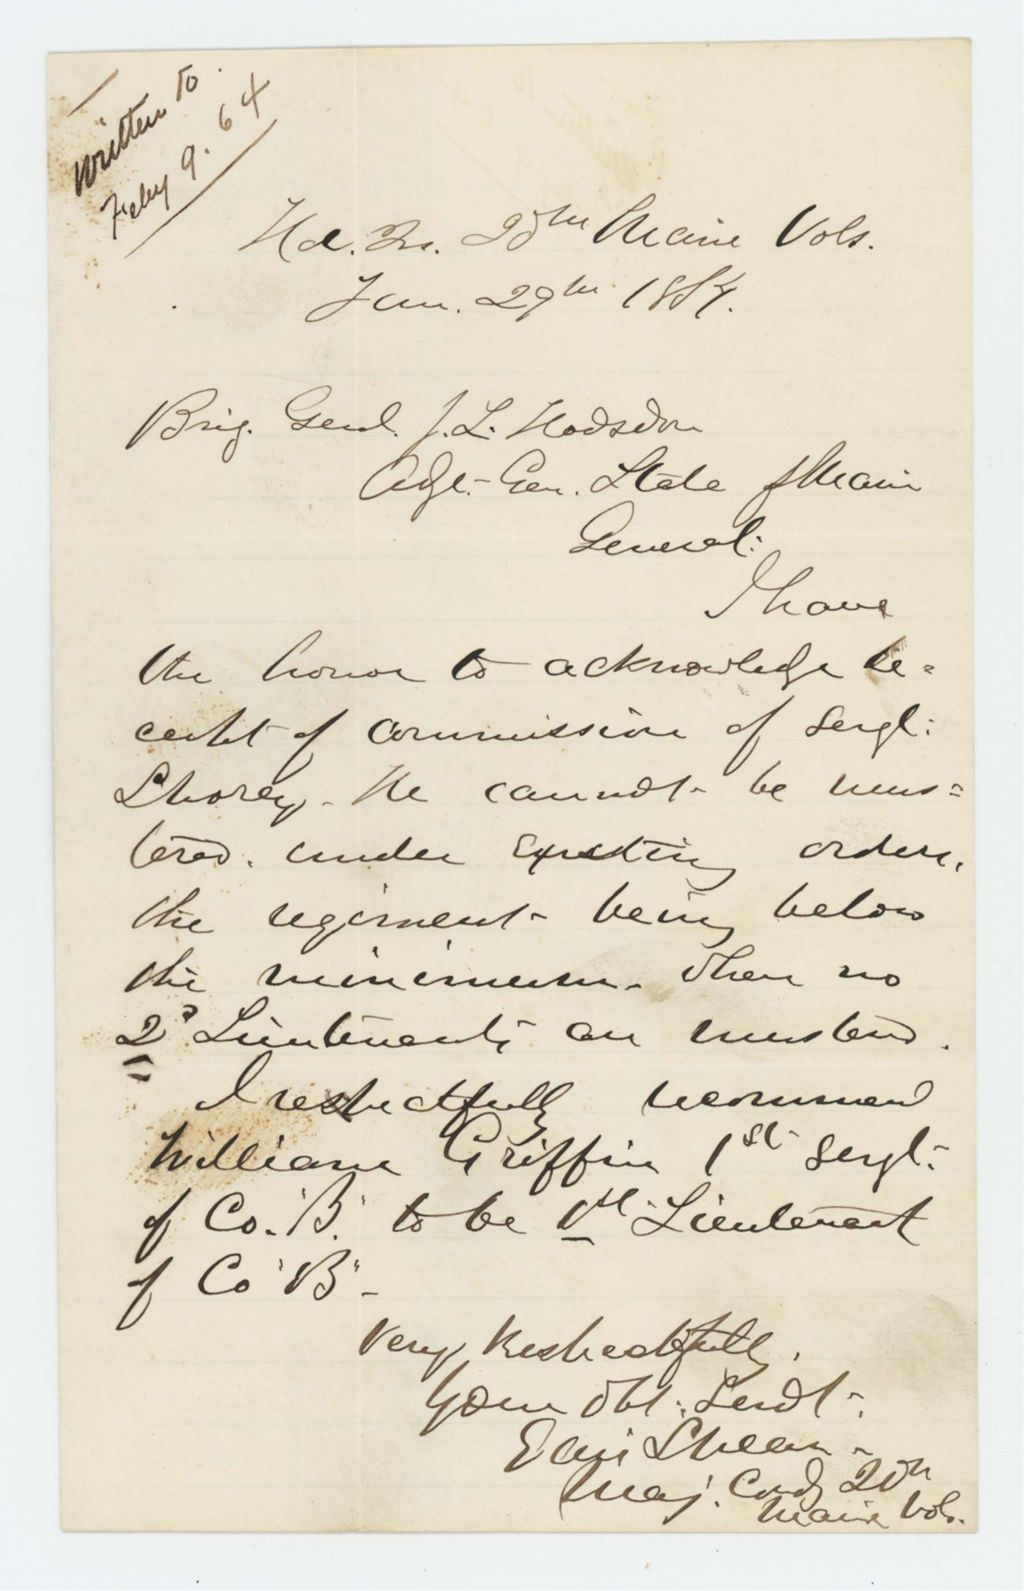 Written to
Feby 9. 64
Hd. Qrs. 20th Maine Vols.
Jan. 29th 1864.
Brig. Genl. J. L. Hodsdon
Adjt.-Gen. State of Maine
General:
I have
the honor to acknowledge re=
ceipt of commission of Sergt.
Shorey. He cannot be mus=
tered. under existing orders,
the regiment being below
the minimum. When no
2d Lieutenants are mustered.
I respectfully recommend
William Griffin 1st Sergt.
of Co. "B". to be 1st Lieutenant
of Co "B"-
Very Respectfully,
Your Obt. Servt.
Ellis Spear.
Maj. Comdg 20th
Maine Vols.